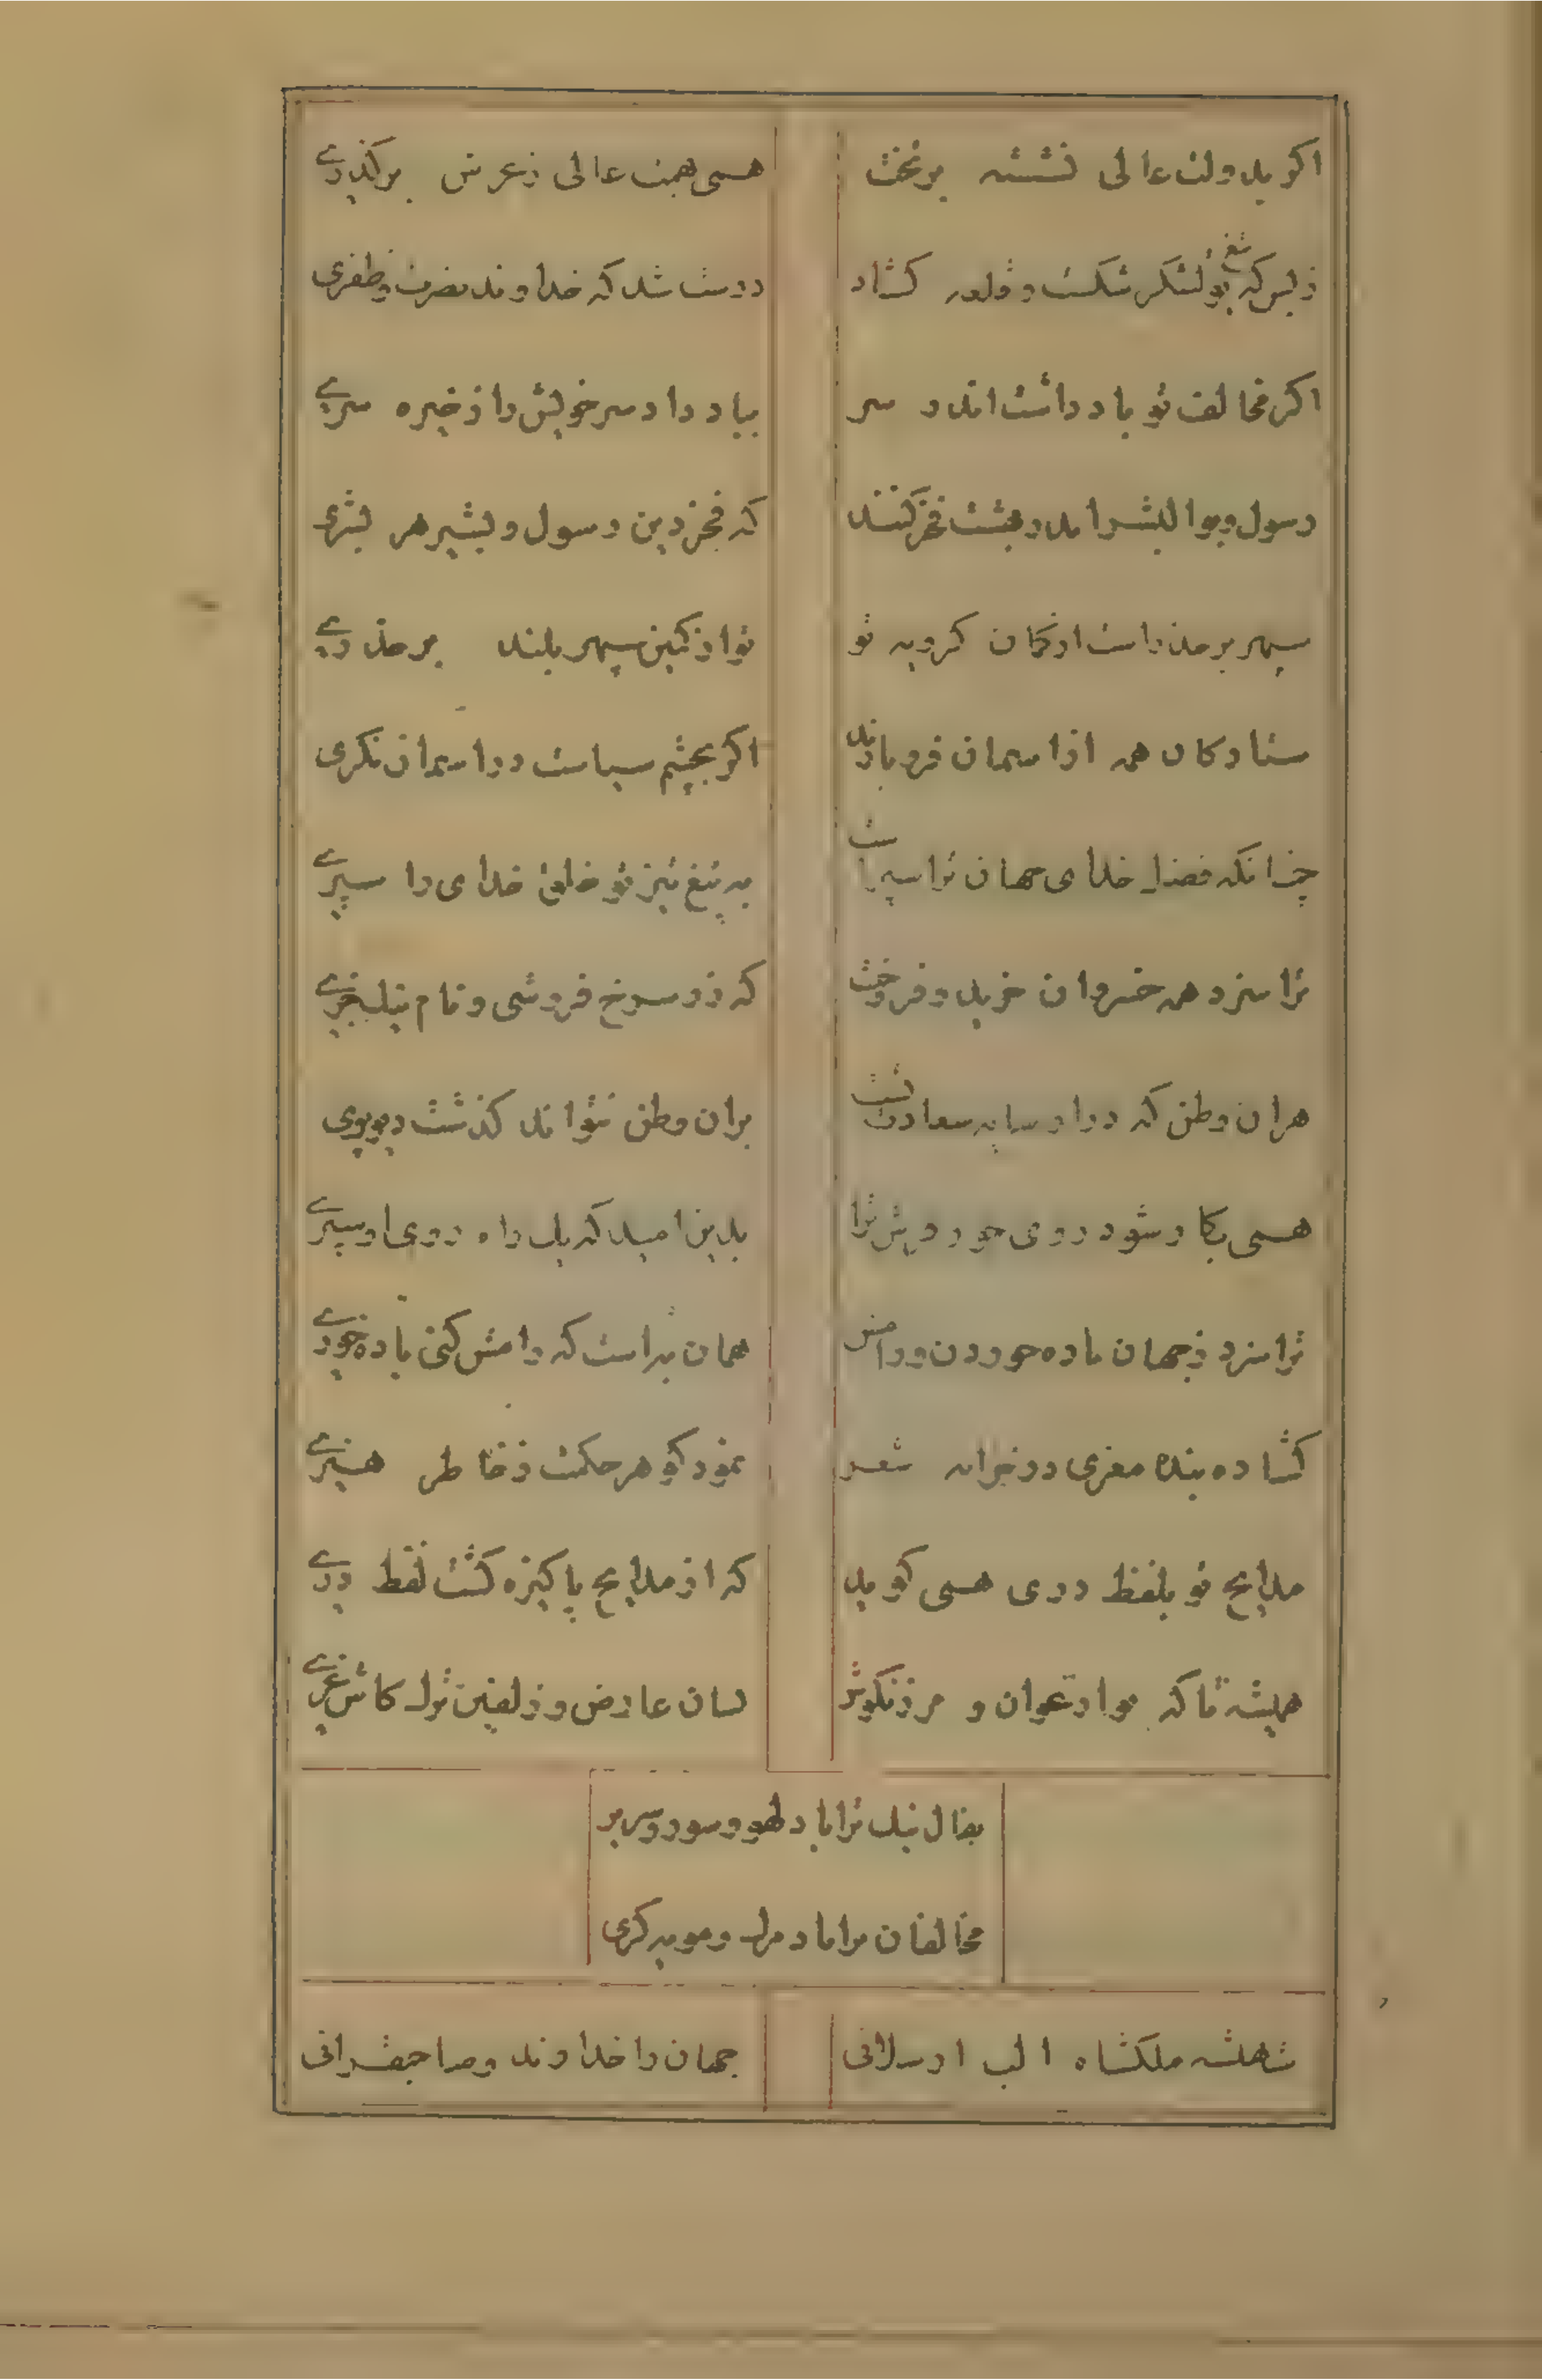 اکر بدولت عالی نشسته بر تخت همی بهمت عالی زعرش برکذری
زبس که تیغ تو لشکر شکست و قلعه کشاد درست شد که خداوند نصرت و ظفری
اکر مخالف تو باد داشت اندر سر بباد داد سر خویش را ز خیره سری
رسول و بوالبشر اندر بهشت فخر کنند که فخر دین رسول و بشیر هر بشری
سپهر بر حذر است از کمان کروبه تو تو از کمین سپهر بلند بر حذری
ستارکان همه از اسمان فرو بارند اکر بچشم سیاست در اسمان نکری
چنانکه فضل خدای جهان ترا سپر است به تیغ تیز تو خلق خدای را سپری
ترا سزد همه خسروان خرید و فروخت که زر سرخ فروشی و نام نیک خری
هران وطن که درا و سایه سعادت تست بران وطن نتواند کذشت دیو پری
همی بکار شود روی حور در پیش ترا بدین امید که یک راه روی او سپری
ترا سزد زجهان باده خوردن و رامش همان به است که رامش کنی باده خوری
کشاده بنده معزی در خزانه شعر نمود کوهر حکمت ز خاطر هنری
مدایح تو بلفظ دری همی کوید که از مدایح پاکیزه کشت لفظ دری
همیشه تا که بوا دعوان و مرزنکوش لسان عارض و زلفین ترک کاشغری
بفال نیک ترا باد لهو و سور و سریر
مخالفان ترا باد مرک و مویه کری
شاهنشه ملکشاه الب ارسلانی جهان را خداوند و صاحبقرانی